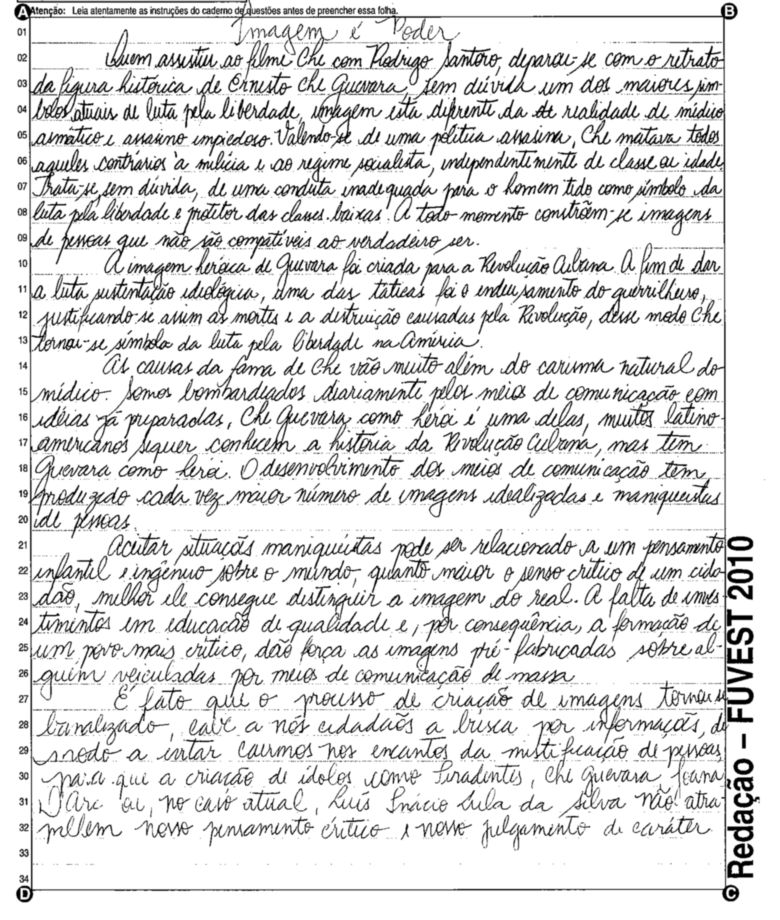 A Atenção: Leia atentamente as instruções do caderno de questões antes de preencher essa folha. B
01 Imagem é Poder
02 Quem assistiu ao filme Che com Rodrigo Santoro, deparou-se com o retrato
03 da figura histórica de Ernesto Che Guevara, sem dúvida um dos maiores sím-
04 bolos atuais de luta pela liberdade, imagem esta diferente da realidade de médico
05 asmático e assasino impiedoso. Valendo-se de uma política assasina, Che matava todos
06 aqueles contrários à milícia e ao regime socialista, independentemente de classe ou idade.
07 Trata-se, sem dúvida, de uma conduta inadequada para o homem tido como símbolo da
08 luta pela liberdade e protetor das classes baixas. A todo momento constrõem-se imagens
09 de pessoas que não são compatíveis ao verdadeiro ser.
10 A imagem heróica de Guevara foi criada para a Revolução Cubana. A fim de dar
11 a luta sustentação ideológica, uma das táticas foi o endeusamento do guerrilheiro,
12 justificando-se assim as mortes e a destruição causadas pela Revolução, desse modo Che
13 tornou-se símbolo da luta pela liberdade na América.
14 As causas da fama de Che vão muito além do carisma natural do
15 médico. Somos bombardeados diariamente pelos meios de comunicação com
16 idéias já preparadas, Che Guevara como herói é uma delas, muitos latino-
17 americanos sequer conhecem a história da Revolução Cubana, mas tem
18 Guevara como herói. O desenvolvimento dos meios de comunicação tem
19 produzado cada vez maior número de imagens idealizadas e maniqueístas
20 de pessoas.
21 Aceitar situaçãs maniqueístas pode ser relacionado a um pensamento
22 infantil e ingênuo sobre o mundo, quanto maior o senso crítico de um cida-
23 dão, melhor ele consegue distinguir a imagem do real. A falta de inves
24 timentos em educação de qualidade e, por consequência, a formação de
25 um povo mais crítico, dão força as imagens pré-fabricadas sobre al-
26 guém veiculadas por meios de comunicação de massa
27 É fato que o processo de criação de imagens tornou-se
28 banalizado, cabe a nós cidadãos a busca por informaçãs, de
29 modo a evitar cairmos nos encantos da mistificação de pessoas,
30 para que a criação de ídolos como Tiradentes, Che Guevara Joana
31 D'Arc ou, no caso atual, Luis Inácio Lula da Silva não atra
32 palhem nosso pensamento crítico e nosso julgamento de caráter.
33
34
D C
Redação – FUVEST 2010